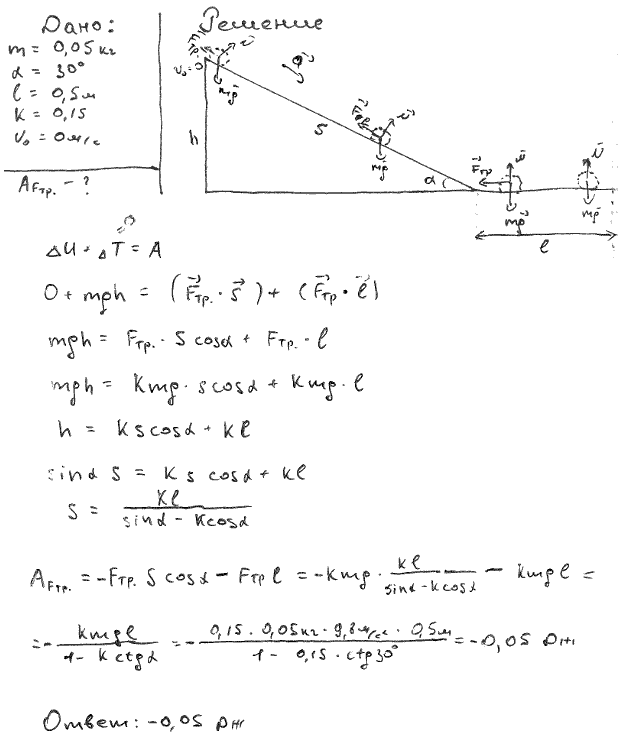 Дано:
m = 0,05 кг
α = 30°
l = 0,5 м
K = 0,15
V₀ = 0 м/с
A Fтр. - ?
Решение
V₀ = 0
h
S
α
F⃗тр
mg⃗
mg⃗
mg⃗
l
ΔU + ΔT = A
0
0 + mgh = (F⃗тр. · s⃗) + (F⃗тр · l⃗)
mgh = Fтр. · S cosα + Fтр. · l
mgh = Kmg · s cosα + Kmg · l
h = K s cosα + Kl
sinα S = K s cosα + kl
S = Kl / (sinα - Kcosα)
A Fтр. = -Fтр. S cosα - Fтр l = -Kmg · kl / (sinα - k cosα) - kmg l =
= - kmgl / (1 - K ctgα) = - 0,15 · 0,05кг · 9,8 м/с² · 0,5м / (1 - 0,15 · ctg30°) = -0,05 Дж
Ответ: -0,05 Дж